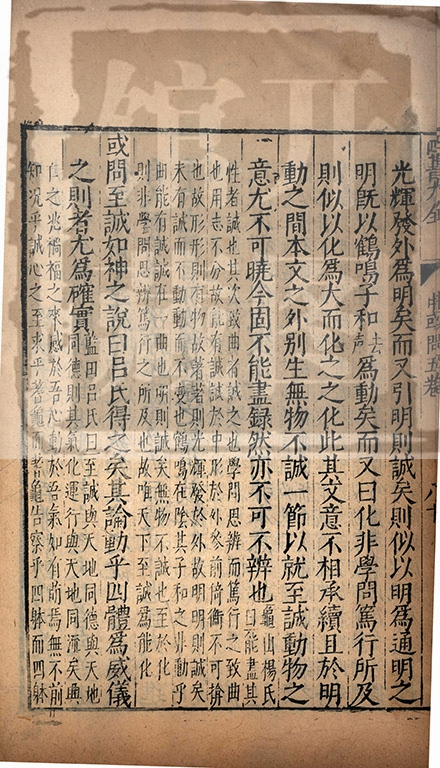 光輝發外爲明矣而又引明則誠矣則似以明爲通明之
明旣以鶴鳴子和去聲爲動矣而又曰化非學問篤行所及
則似以化爲大而化之之化此其文意不相承續且於明
動之間本文之外别生無物不誠一節以就至誠動物之
意尤不可曉今固不能盡録然亦不可不辨也龜山楊氏曰能盡其
性者誠也其次致曲者誠之也學問思辨而篤行之致曲
也用志不分故能有誠誠於中形於外參前倚衡不可揜
也故形形則有物故著著則光輝發於外故明明則誠矣
未有誠而不動動而不變也鶴鳴在陰其子和之非動乎
曲能有誠誠在一曲也明則誠矣無物不誠也至於化
則非學問思辨篤行之所及也故唯天下至誠爲能化
或問至誠如神之說曰呂氏得之矣其論動乎四體爲威儀
之則者尤爲確實藍田呂氏曰至誠與天地同德與天地同德則其氣化運行與天地同流矣興
亡之兆禍福之來感於吾心動於吾氣如有萌焉無不前
知况乎誠心之至求乎蓍龜而蓍龜告察乎四躰而四躰